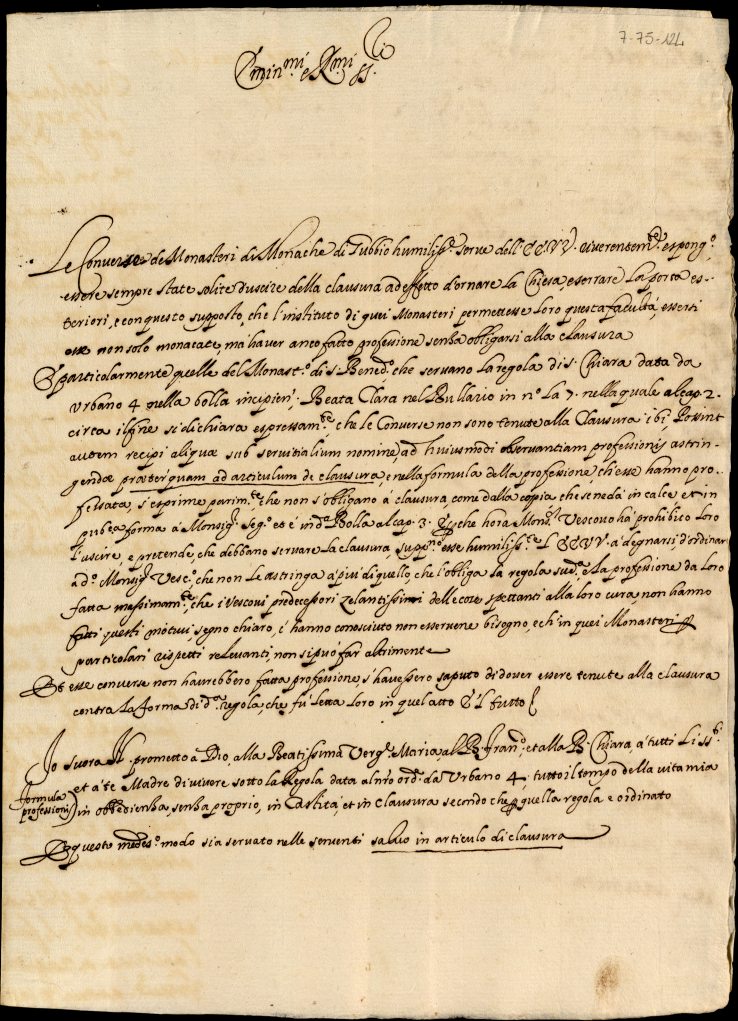 7-75-124
Emin.mi e R.mi SS.ri
Le Converse de Monasteri di Monache di Gubbio humiliss.e serve dell'EE.VV. riverentem.te espong.o
essere sempre state solite d'uscire della clausura ad effetto d'ornare la Chiesa e serrare la porta es-
teriori, e con questo supposto, che l'instituto di quei Monasteri permettesse loro questa facultà, essersi
esse non solo monacate, mà haver anco fatto professione senza obligarsi alla clausura
E particolarmente quelle del Monast.o di S. Bened.o che servano la regola di S. Chiara data da
Urbano 4 nella bolla incipien, Beata Clara nel Bullario in n.o La 7. nella quale al cap. 2.
circa il fine si dichiara espressam.te che le Converse non sono tenute alla Clausura ibi, Possint
autem recipi aliquæ sub servitialium nomine, ad huiusmodi observantiam professionis astrin-
gendæ præterquam ad articulum de clausura, e nella formula della professione, ch'esse hanno pro-
fessata, s'esprime parim.te che non s'obligano à clausura, come dalla copia che se ne dà in calce et in
pub.ca forma à Monsig.r Seg.o et è in d.a Bolla al cap. 3. E p.che hora Mons.r Vescovo hà prohibito loro
l'uscire, e pretende, che debbano servare la clausura, supp.no esse humiliss.e l'EE.VV. à degnarsi d'ordinar
ad.o Monsig.r Vesc.o che non le astringa à più di quello che l'obliga la regola sud.a e la professione da loro
fatta massimam.te che i Vescovi predecessori zelantissimi delle cose spettanti alla loro cura, non hanno
fatti questi motivi, segno chiaro, c'hanno conosciuto non esservene bisogno, e ch'in quei Monasteri p
particolari rispetti relevanti, non si può far altrimente
Et esse converse non havrebbero fatta professione, s'havessero saputo di dover essere tenute alla clausura
contra la forma di d.a regola, che fù letta loro in quel atto E il tutto
Io suora N. prometto à Dio, alla Beatissima Verg.e Maria, al B. Fran.o, et alla B. Chiara, à tutti li SS.ti
et à te Madre di vivere sotto la Regola data al nro ord.e da Urbano 4, tutto il tempo della vita mia
formula
professionis
in obbedienza, senza proprio, in Castità, et in clausura secondo che p quella regola e ordinato
E questo medes.o modo sia servato nelle serventi salvo in articulo di clausura